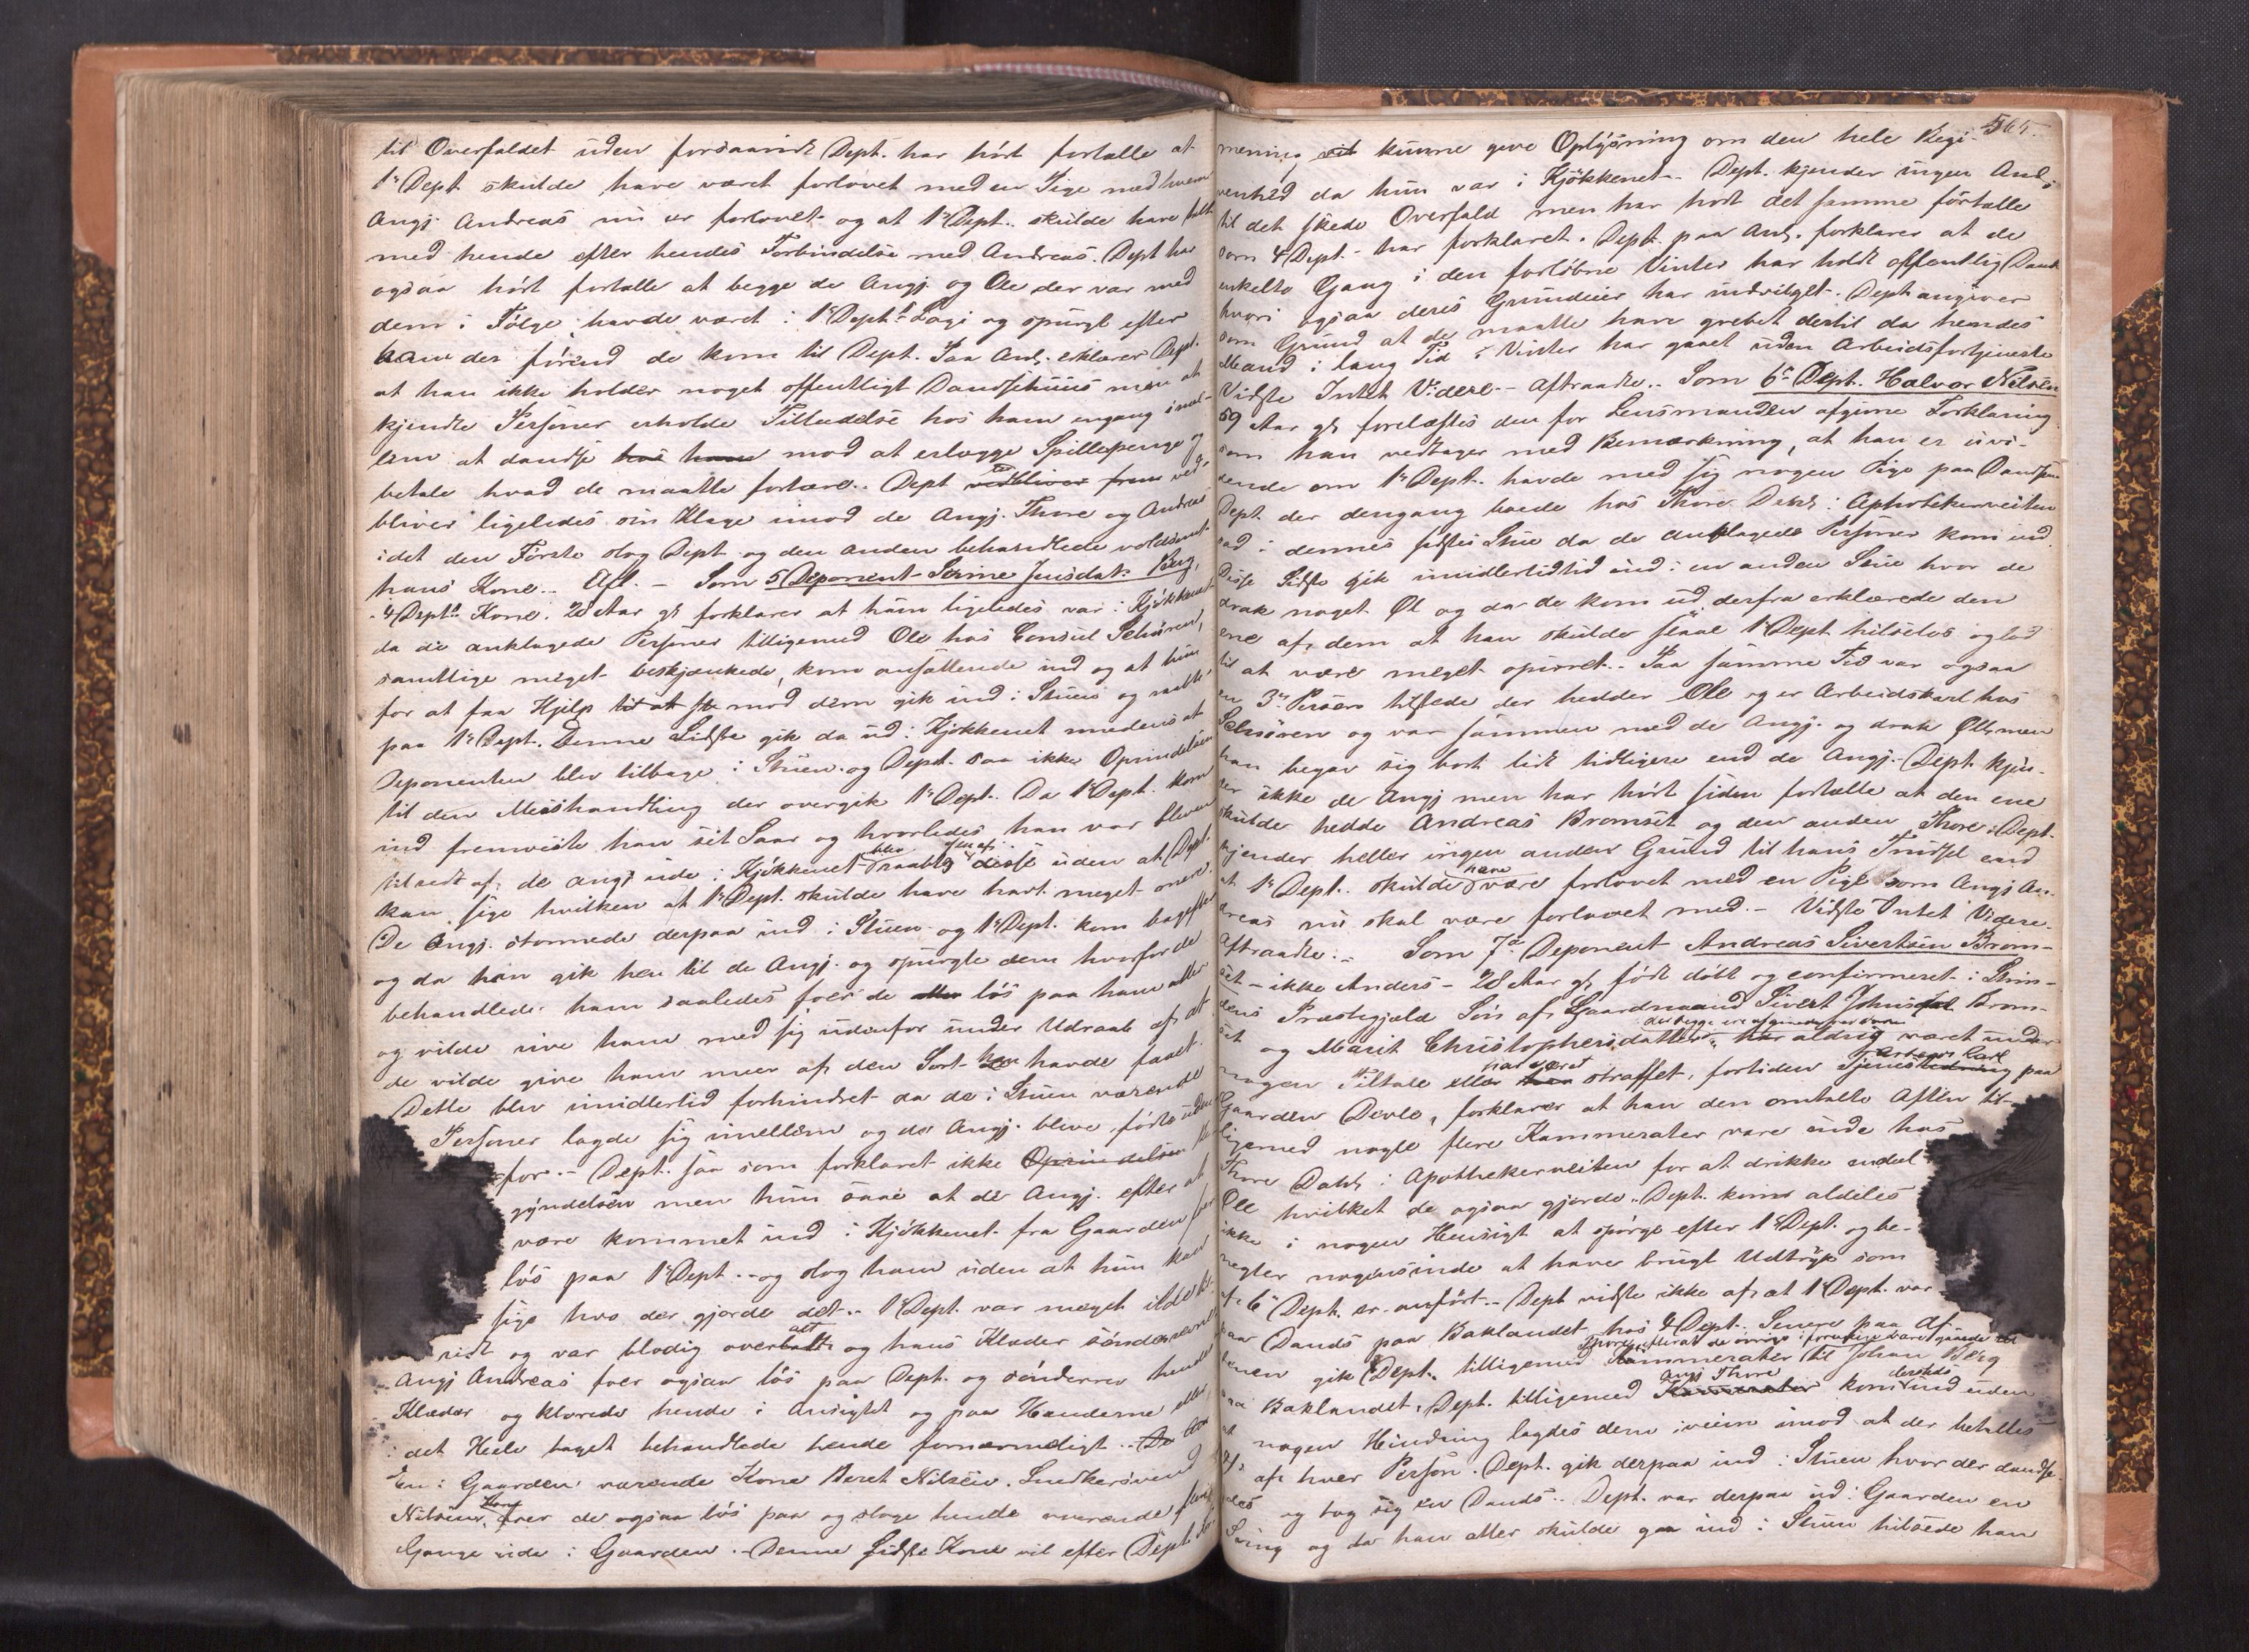 til Overfaldet uden forsaavidt Dept. har hørt fortælle at
1e Dept skulde have været forlovet med en Pige med hvem
Angj. Andreas nu er forlovet og at 1e Dept. skulde have
med hende efter hendes Forbindelse med Andreas. Dept har
ogsaa hørt fortælle at begge de Angj og Ole der var med
dem i Følge, havde været i 1e Depts Logi og spurgt efter
ham der førend de kom til Dept. Paa Anl. erklærer Dept.
at han ikke holder noget offentligt Dandsehuus men at
kjendte Personer erholde Tilladelse hos ham engang imel-
lem at dandse hos ham mod at erlægge Spillepenge og
betale hvad de maatte fortære. Dept vedbliver frem ved-
bliver ligeledes sin Klage imod de Angj. Thore og Andreas
idet den Første slog Dept og den anden behandlede voldsomt
hans Kone.. Aft. - Som 5 Deponent Serine Jensdat: Berg,
4 Depts Kone. 28 Aar gl. forklarer at hun ligeledes var i Kjøkkenet
da de anklagede Personer tilligemed Ole hos Consul Schøren,
samtlige meget beskjænkede, kom ind og at hun
for at faa Hjelp til at mod dem gik ind i Stuen og raabte
paa 1e Dept. Denne Sidste gik da ud i Kjøkkenet medens at
Deponenten blev tilbage i Stuen og Dept. saa ikke Oprindelsen
til den Mishandling der overgik 1e Dept. Da 1e Dept. kom
ind fremviste han sit Saar og hvorledes han var bleven
tilredt af de angj ude i Kjøkkenet blev raabte af disse uden at Dept.
kan sige hvilken at 1e Dept. skulde have havt meget mere.
De Angj. stormede derpaa ind i Stuen og 1e Dept. kom bagefter
og da han gik hen til de Angj. og spurgte dem hvorfor de
behandlede ham saaledes foer de løs paa ham atter
og vilde rive ham med sig udenfor under Udraab af at
de vilde give ham meer af den Sort han havde faaet.
Dette blev imidlertid forhindret da de i Stuen værende
Personer lagde sig imellem og de Angj. bleve førte uden
for.- Dept. saa som forklaret ikke Oprindelsen
gyndelsen men hun saae at de Angj. efter at
være kommet ind i Kjøkkenet fra Gaarden foer
løs paa 1e Dept.. og slog ham uden at hun kan
sige hvo der gjorde det.. 1e Dept. var meget ilde til-
redt og var blodig overalt og hans Klæder sønderrevne
Angj Andreas foer ogsaa løs paa Dept. og sønderrev hendes
Klæder og klorede hende i Ansigtet og paa Hænderne eller
i det Hele taget behandlede hende fornærmeligt..
En i Gaarden værende Kone Beret Nilsen. Snedkersvend
Nilsens Kone foer de ogsaa løs paa og sloge hende
Gange ude i Gaarden. Denne Sidste Kone vil efter Dept. For
565.
mening vil kunne give Oplysning om den hele Begi-
venhed da hun var i Kjøkkenet.. Dept. kjender ingen Anl.
til det skede Overfald men har hørt det samme fortælle
som 4 Dept. har forklaret. Dept. paa Anl. forklarer at de
enkelte Gang i den forløbne Vinter har holdt offentlig Dands
hvori ogsaa deres Grundeier har indvilget. Dept angiver
som Grund at de maatte have grebet dertil da hendes
Mand i lang Tid i Vinter har gaaet uden Arbeidsfortjeneste
Vidste Intet Videre.. Aftraadte.. Som 6e Dept. Halvor Nilsen
59 Aar gl forelæstes den for Lensmanden afgivne Forklaring
som han vedtager med Bemærkning, at han er uvi-
dende om 1e Dept. havde med sig nogen Pige paa Dandsen
Dept. der dengang boede hos Thore Dahl i Apothekerveiten
sad i dennes sidstes Stue da de anklagede Personer kom ind.
Disse Sidste gik imidlertidtid ind i en anden Stue hvor de
drak noget Øl og da de kom ud derfra erklærede den
ene af dem at han skulde slaae 1e Dept. hilseløs og lod
til at være meget opirret.. Paa samme Tid var ogsaa
en 3e Person tilstede der hedder Ole og er Arbeidskarl hos
Schøren og var sammen med de Angj. og drak Øll, men
han begav sig bort lidt tidligere end de Angj.- Dept. kjen-
der ikke de Angj men har hørt siden fortælle at den ene
skulde hedde Andreas Bromset og den anden Thore. Dept.
kjender heller ingen anden Grund til hans Trudsel end
at 1e Dept. skulde have være forlovet med en Pige som Angj An-
dreas nu skal være forlovet med.- Vidste Intet Videre.
Aftraadte.- Som 7de Deponent Andreas Sivertsen Brom-
set - ikke Anders - 28 Aar gl, født døbt og confirmeret i Strin-
dens Præstegjæld Søn af Gaardmand Sivert Johnsen Brom-
set og Marit Christophersdatter, der begge ere har aldrig været under
nogen Tiltale eller har været straffet, fortiden Tjenestedreng paa
Gaarden Devle, forklarer at han den omtalte Aften til-
ligemed nogle flere Kammerater vare inde hos
Thore Dahl i Apothekerveiten for at drikke endel
Øll hvilket de ogsaa gjorde.. Dept. kom aldeles
ikke i nogen Hensigt at spørge efter 1e Dept. og be-
negter nogensinde at have brugt Udtryk som
af 6e Dept. er anført.. Dept vidste ikke af at 1e Dept. var
paa Dands paa Baklandet hos 4 Dept. Senere paa Af-
tenen gik Dept. tilligemed Kammerater til Johan Berg
paa Baklandet, Dept. tilligemed Angj Thore kom dersteds ind uden
at nogen Hindring lagdes dem iveien imod at der betaltes
af hver Person. Dept. gik derpaa ind i Stuen hvor der dandse-
des og tog sig en Dands.. Dept. var derpaa ud i Gaarden en
Sving og da han atter skulde gaa ind i Stuen hilsede han